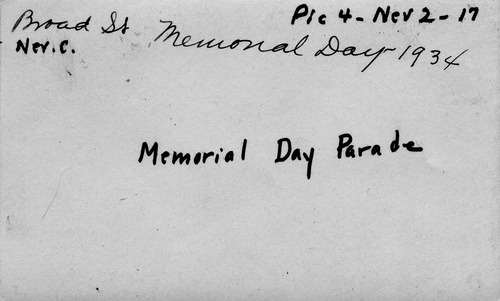 Pic 4- Nev 2-17
Broad St Memorial Day 1934
Nev. C.
Memorial Day Parade